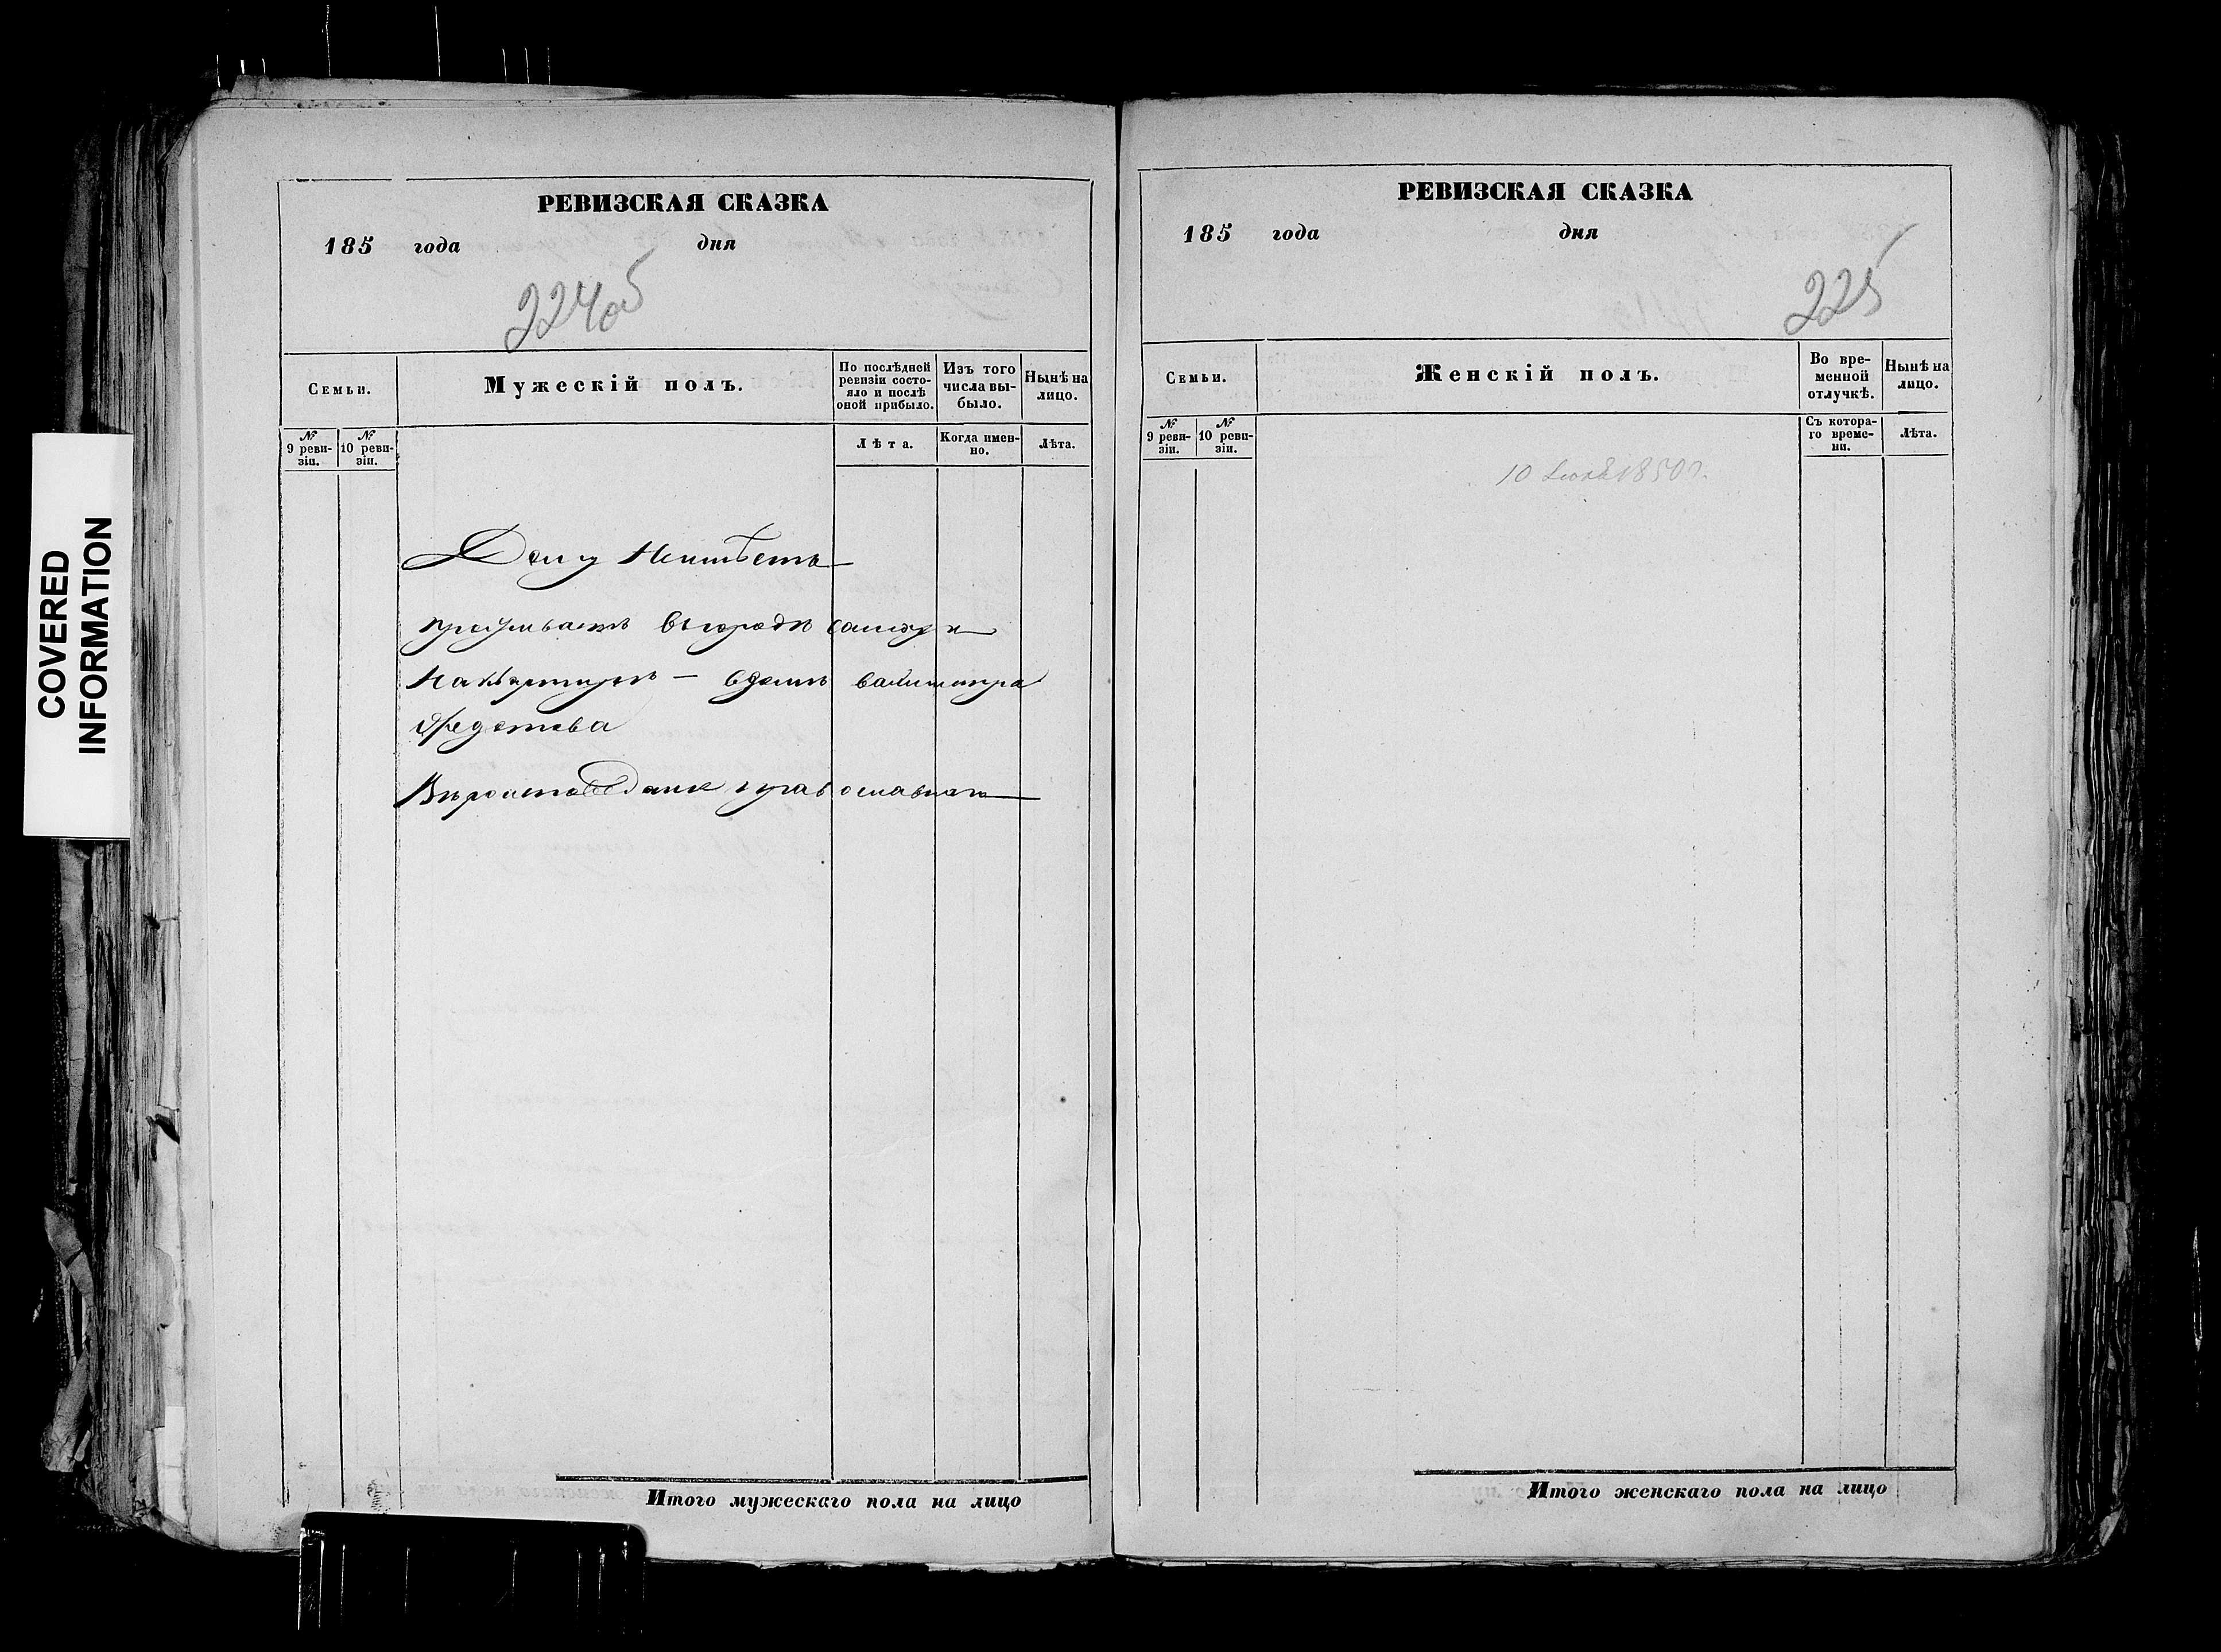 COVERED
INFORMATION
РЕВИЗСКАЯ СКАЗКА
185 года дня
224об
Семьи.
Мужескій полъ.
По послѣдней
ревизіи состо-
яло и послѣ
оной прибыло.
Изъ того
числа вы-
было.
Нынѣ на
лицо.
№
9 реви-
зіи.
№
10 реви-
зіи.
Лѣта.
Когда имен-
но.
Лѣта.
Дому Неимѣетъ
проживаетъ въ городѣ
На квартирѣ - вдомѣ
Федотова
Вѣроисповеданія православнаго
Итого мужескаго пола на лицо
РЕВИЗСКАЯ СКАЗКА
185 года дня
225
Семьи.
Женскій полъ.
Во вре-
менной
отлучкѣ.
Нынѣ на
лицо.
№
9 реви-
зіи.
№
10 реви-
зіи.
Съ котора-
го време-
ни.
Лѣта.
10 1850г.
Итого женскаго пола на лицо